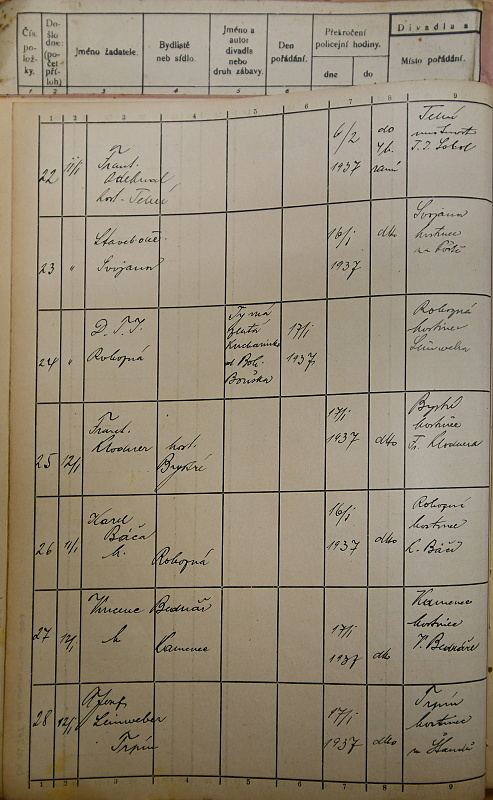 Čís. položky.
Došlo dne: (počet příloh)
Jméno žadatele.
Bydliště neb sídlo.
Jméno a autor divadla nebo druh zábavy.
Den pořádání.
Překročení policejní hodiny.
dne
do
Divadlu a
Místo pořádání.
1 2 3 4 5 6 7 8 9
22 11/1 Frant. Odehnal host. Telecí
6/2 1937
do 4 h. ranní
Telecí T. J. Sokol
23 "
Svojanov
16/1 1937
dtto
Svojanov hostinec na Poště
24 "
D. T. J. Rohozná
Ty má zlatá kuchařinko od Boh. Bouška
17/1 1937
Rohozná hostinec Leinweber
25 12/1
Frant. Klodner
host. Bystré
17/1 1937
dtto
Bystré hostinec Fr. Klodnera
26 11/1
Karel Báča h.
Rohozná
16/1 1937
dtto
Rohozná hostinec K. Báči
27 12/1
Vincenc Bednář h
Kamenec
17/1 1937
dtto
Kamenec hostinec V. Bednáře
28 12/1
Josef Leinweber Trpín
17/1 1937
dtto
Trpín hostinec
1 2 3 4 5 6 7 8 9